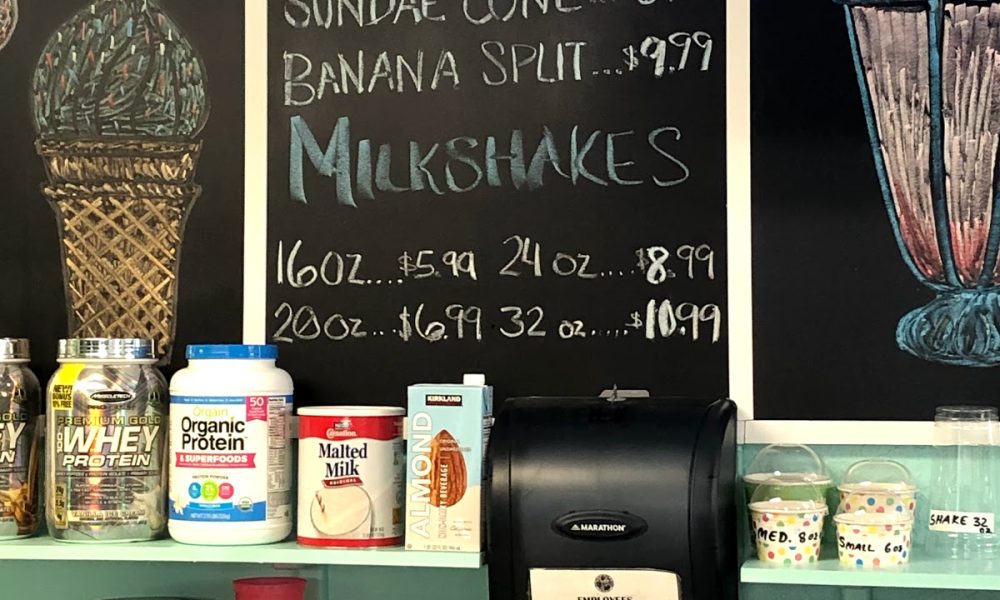 SUNDAE CONE
BANANA SPLIT...$9.99
MILKSHAKES
16oz....$5.99 24 oz....$8.99
20oz...$6.99 32 oz.....$10.99
NEW
BONUS
MUSCLETECH
PREMIUM GOLD
100% WHEY
PROTEIN
Orgain
Organic
Protein
& SUPERFOODS
50
Carnation
Malted
Milk
ORIGINAL
KIRKLAND
ALMOND
MARATHON
EMPLOYEES
MED. 8oz
Small 6oz
SHAKE 32
oz